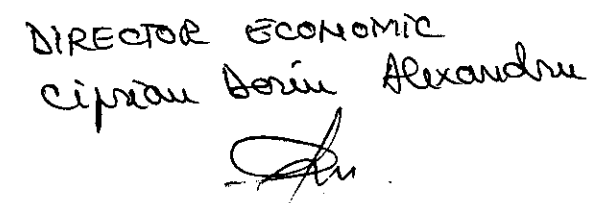 DIRECTOR ECONOMIC
Ciprian Dorin Alexandru